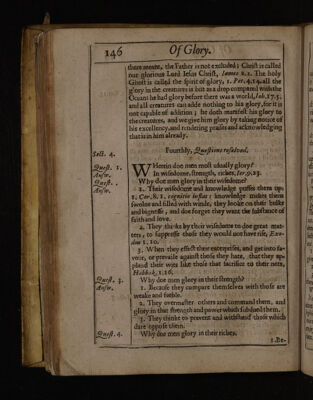 146 Of Glory.
there meant, the Father is not excluded; Christ is called
our glorious Lord Iesus Christ, Iames 2.1. The holy
Ghost is called the Spirit of glory, 1. Pet.4.14. all the
glory in the creatures is but as a drop compared with the
Ocean: he had glory before there was a world, Ioh.17.5.
and all creatures can adde nothing to his glory, for it is
not capable of addition; he doth manifest his glory to
the creatures, and we give him glory by taking notice of
his excellency, and rendring praises and acknowledging
that is in him already.
Sect. 4.
Fourthly, Questions resolved.
Quest. 1.
WHerein doe men most usually glory?
Answ.
In wisedome, strength, riches, Ier.9.23.
Quest.
Why doe men glory in their wisedome?
Answ.
1. Their wisedome and knowledge puffes them up,
1. Cor. 8. 1. knowledge makes them
swolne and filled with winde; they looke on their bulke
and bignesse, and doe forget they want the substance of
faith and love.
2. They thinke by their wisedome to doe great mat-
ters, to suppresse those they would not have rise, Exo-
dus 1. 10.
3. When they effect their enterprises, and get into fa-
vour, or prevaile against those they hate, that they ap-
plaud their wits like those that sacrifice to their nets,
Habbak. 1.16.
Quest. 3.
Why doe men glory in their strength?
Answ.
1. Because they compare themselves with those are
weake and feeble.
2. They overmaster others and command them, and
glory in that strength and power which subdued them.
3. They thinke to prevent and withstand those which
dare oppose them.
Quest. 4.
Why doe men glory in their riches.
1. Be-